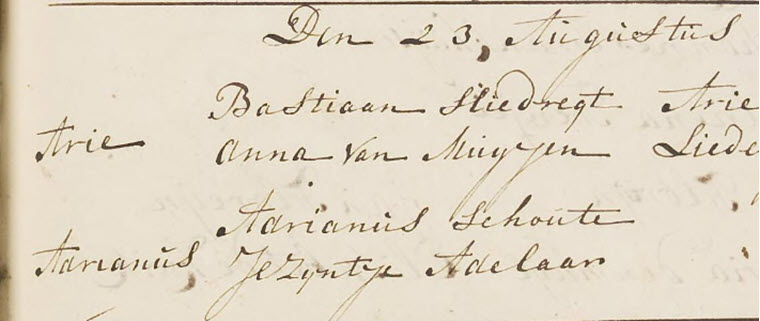 Den 23 Augustus
Bastiaan Sliedregt Arie
Arie Anna van Muyzen Liede
Adrianus Schoute
Adrianus Jezyntje Adelaar